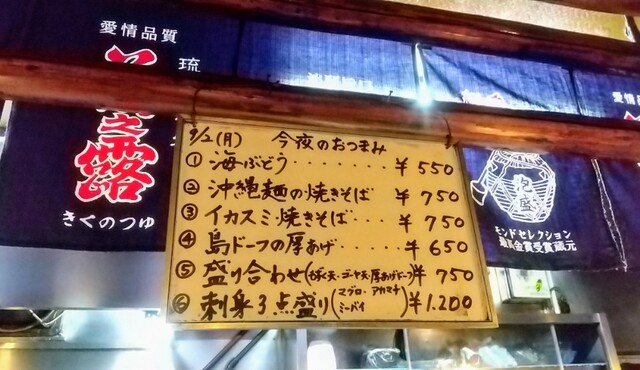 愛情品質
琉
之露
きくのつゆ
9/2(月) 今夜のおつまみ
① 海ぶどう........¥550
② 沖縄麺の焼きそば ¥750
③ イカスミ焼きそば....¥750
④ 島ドーフの厚あげ....¥650
⑤ 盛り合わせ(もずく天・ゴーヤ天・厚あげドーフ)¥750
⑥ 刺身3点盛り(マグロ・アカマチ ミーバイ)¥1.200
泡盛
モンドセレクション
最高金賞受賞蔵元
愛情